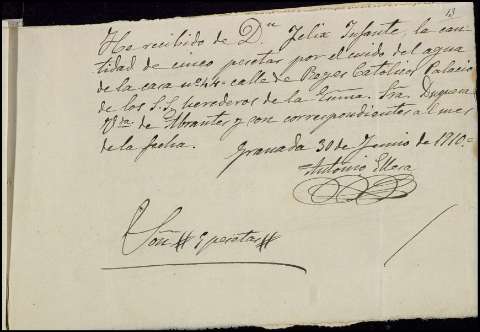 13
He recibido de Dn Felix Infante, la can-
tidad de cinco pesetas por el cuido del agua
de la casa nº 44 calle de Reyes Catolicos Palacio
de los S.S. herederos de la Exma. Sra. Duquesa
Vda de Abrantes y son correspondientes al mes
de la fecha.
Granada 30 de Junio de 1910.=
Antonio
Son # 5 pesetas #